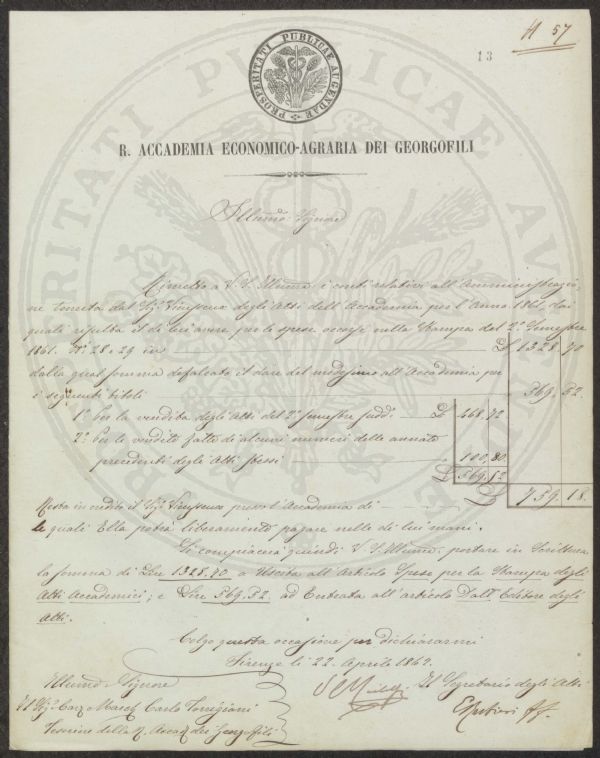 N 57
13
PROSPERITATI PUBLICAE AUGENDAE
R. ACCADEMIA ECONOMICO-AGRARIA DEI GEORGOFILI
Illmo. Signore
Rimetto a V. S. Illuma: i conti relativi all'Amministrazio,
ne tenuta dal Sig. Vieusseux degli Atti dell'Accademia per l'Anno 1861, dai
quali risulta il di lui avere per le spese occorse nella Stampa del 2.º Semestre
1861. Ni 28 e 29 in £ 1328. 70
dalla qual somma defalcato il dare del medesimo all'Accademia per
i seguenti titoli 569. 52.
1.º Per la vendita degli Atti del 2.º semestre sudd. £ 468. 72
2.º Per le vendite fatte di alcuni numeri delle annate
precedenti degli Atti stessi 100, 80
£ 569. 52
Resta in credito il Sig. Vieusseux presso l'Accademia di £ 759. 18.
le quali Ella potrà liberamente pagare nelle di lui mani.
Si compiacerà quindi V. S. Illuma. portare in Scrittura
la somma di Lire 1328. 70 a Uscita all'Articolo Spese per la Stampa degli
Atti Accademici; e Lire 569. 52 ad Entrata all'articolo Dall'Editore degli
Atti.
Colgo questa occasione per dichiararmi
Firenze li 22. Aprile 1862.
Illumo Signore
Il Sig. Cav. March. Carlo Torrigiani
Tesoriere della R. Accad. dei Georgofili
Il Segretario degli Atti